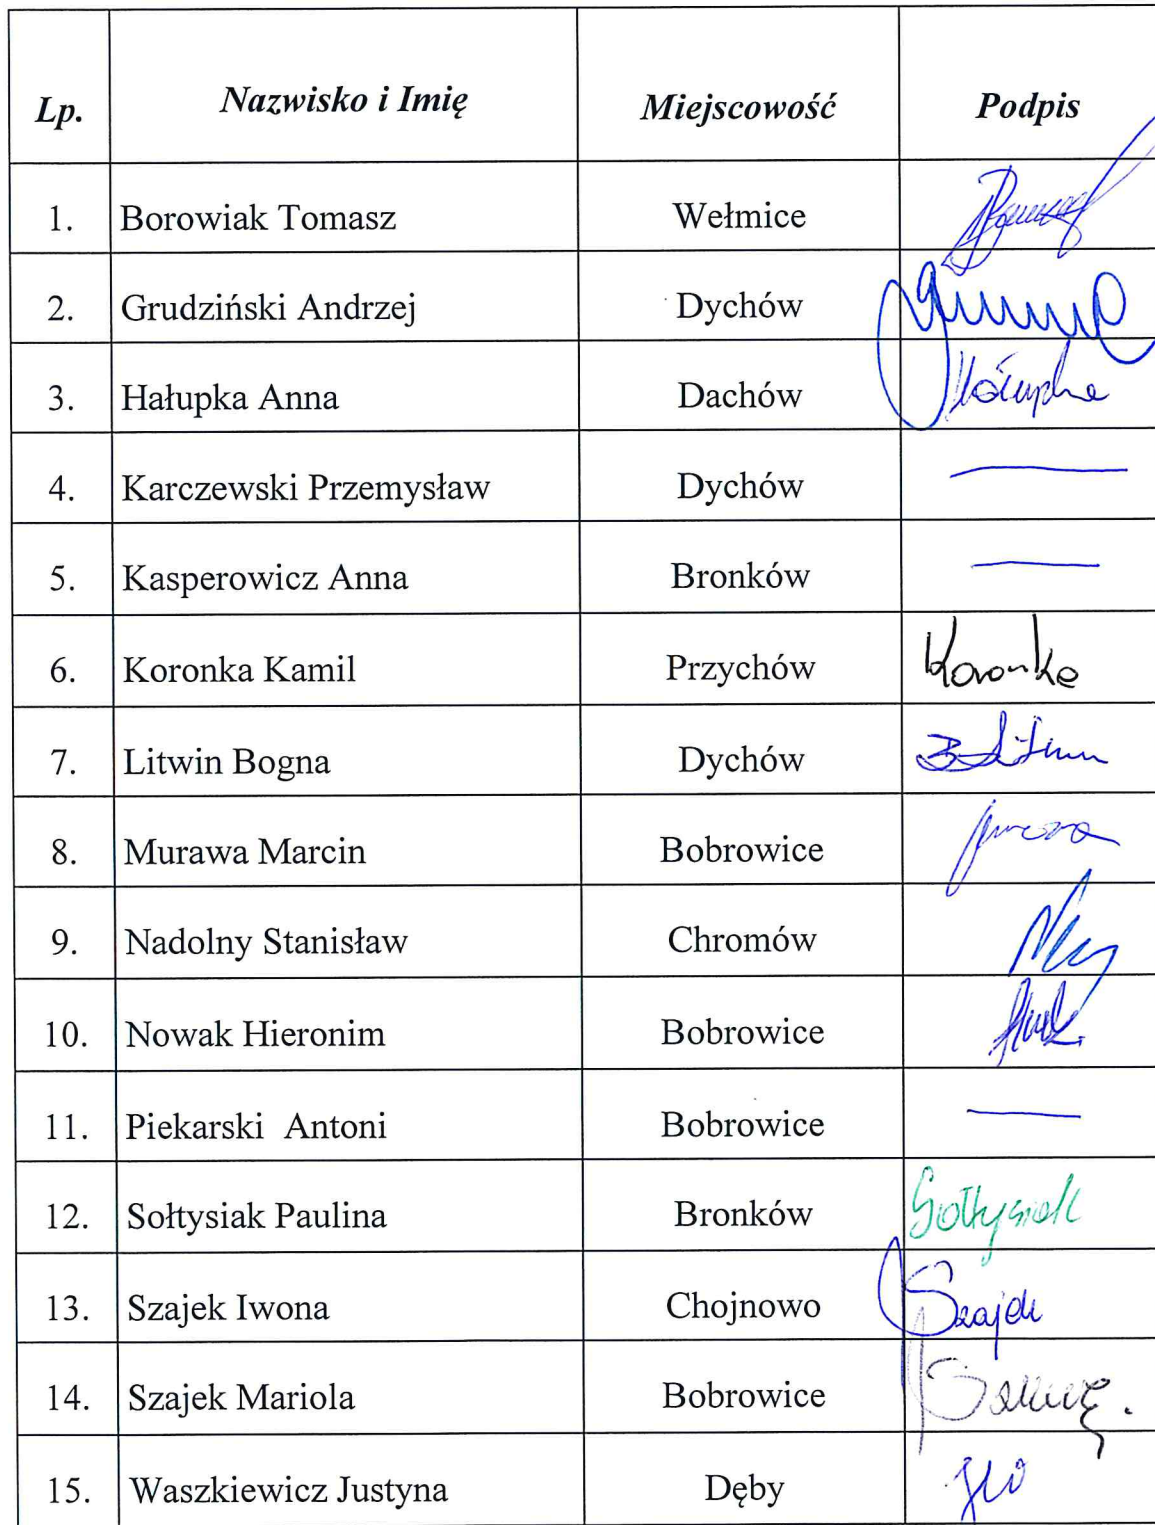 Lp. Nazwisko i Imię Miejscowość Podpis
1. Borowiak Tomasz Wełmice
2. Grudziński Andrzej Dychów
3. Hałupka Anna Dachów Hałupka
4. Karczewski Przemysław Dychów —
5. Kasperowicz Anna Bronków —
6. Koronka Kamil Przychów Koronka
7. Litwin Bogna Dychów B Litwin
8. Murawa Marcin Bobrowice
9. Nadolny Stanisław Chromów
10. Nowak Hieronim Bobrowice
11. Piekarski Antoni Bobrowice —
12. Sołtysiak Paulina Bronków Sołtysiak
13. Szajek Iwona Chojnowo Szajek
14. Szajek Mariola Bobrowice
15. Waszkiewicz Justyna Dęby JW